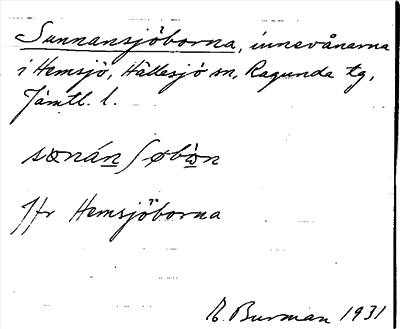 Sunnansjöborna, innevånarna
i Hemsjö, Hällesjö sn, Ragunda tg,
Jämtl. l.
sɷnán ʃøbɷ̀n
Jfr Hemsjöborna
R. Burman 1931